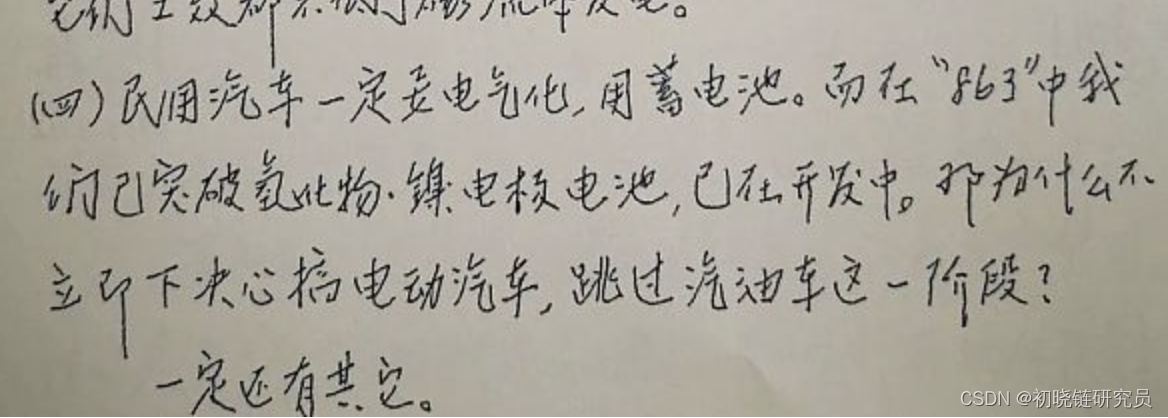 它们工效都不低于磁流体发电。
(四)民用汽车一定要电气化,用蓄电池。而在“863”中我
们已突破氢化物·镍电极电池,已在开发中。那为什么不
立即下决心搞电动汽车,跳过汽油车这一阶段?
一定还有其它。
CSDN @初晓链研究员